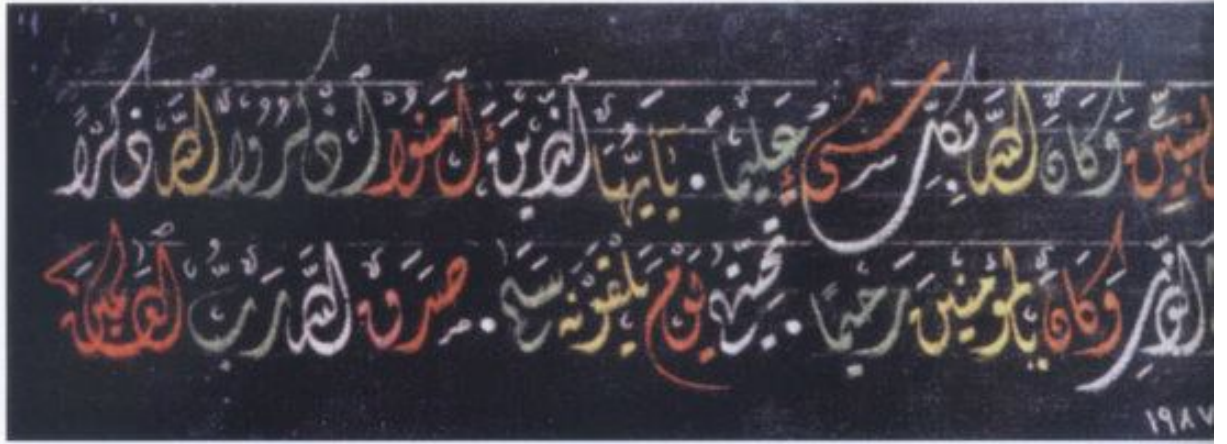 النبيين وكان الله بكل شيء عليما . يايها الذين آمنوا اذكروا الله ذكرا
النور وكان بالمؤمنين رحيما . تحيتهم يوم يلقونه سلم . صدق الله رب العالمين
١٩٨٧